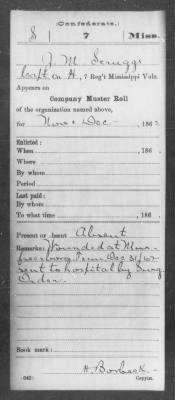 (Confederate.)
S 7 Miss.
J. M. Scruggs
Capt. Co. H., 7 Reg't Mississippi Vols
Appears on
Company Muster Roll
of the organization named above,
for Nov & Dec 186
Enlisted:
When , 186 .
Where
By whom
Period
Last paid:
By whom
To what time , 186 .
Present or absent Absent
Remarks: Wounded at Mur
freesboro, Tenn Dec 31/62
sent to hospital by Surg
Order.
Book mark:
(642) Copyist.